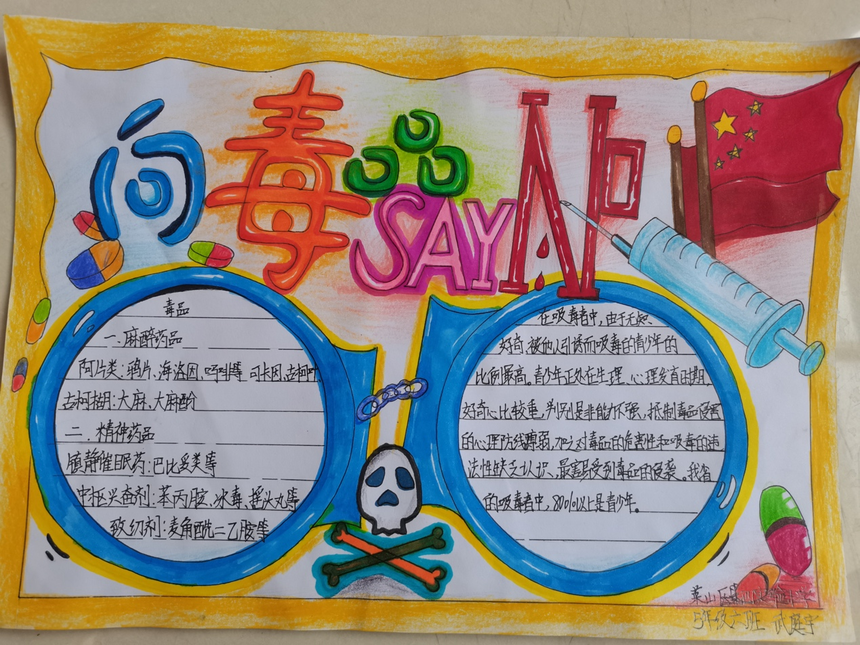 向毒品SAY NO
毒品
一.麻醉药品
阿片类:鸦片、海洛因、吗啡等 可卡因、古柯叶
古柯糊:大麻、大麻酚
二.精神药品
镇静催眠药:巴比妥类等
中枢兴奋剂:苯丙胺、冰毒、摇头丸等
致幻剂:麦角酰二乙胺等
在吸毒者中,由于无知、
好奇、被他人引诱而吸毒的青少年的
比例最高。青少年正处在生理、心理发育时期、
好奇心比较重,判别是非能力不强,抵制毒品侵害
的心理防线薄弱,加之对毒品的危害性和吸毒的违
法性缺乏认识、最容易受到毒品的侵袭。我省
的吸毒者中,80%以上是青少年。
莱山区
5年级六班 武